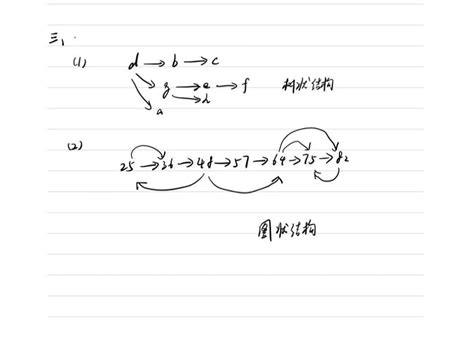 三、
(1) d → b → c
g → e → f 树状结构
a h
(2)
25 → 36 → 48 → 57 → 64 → 75 → 82
图状结构